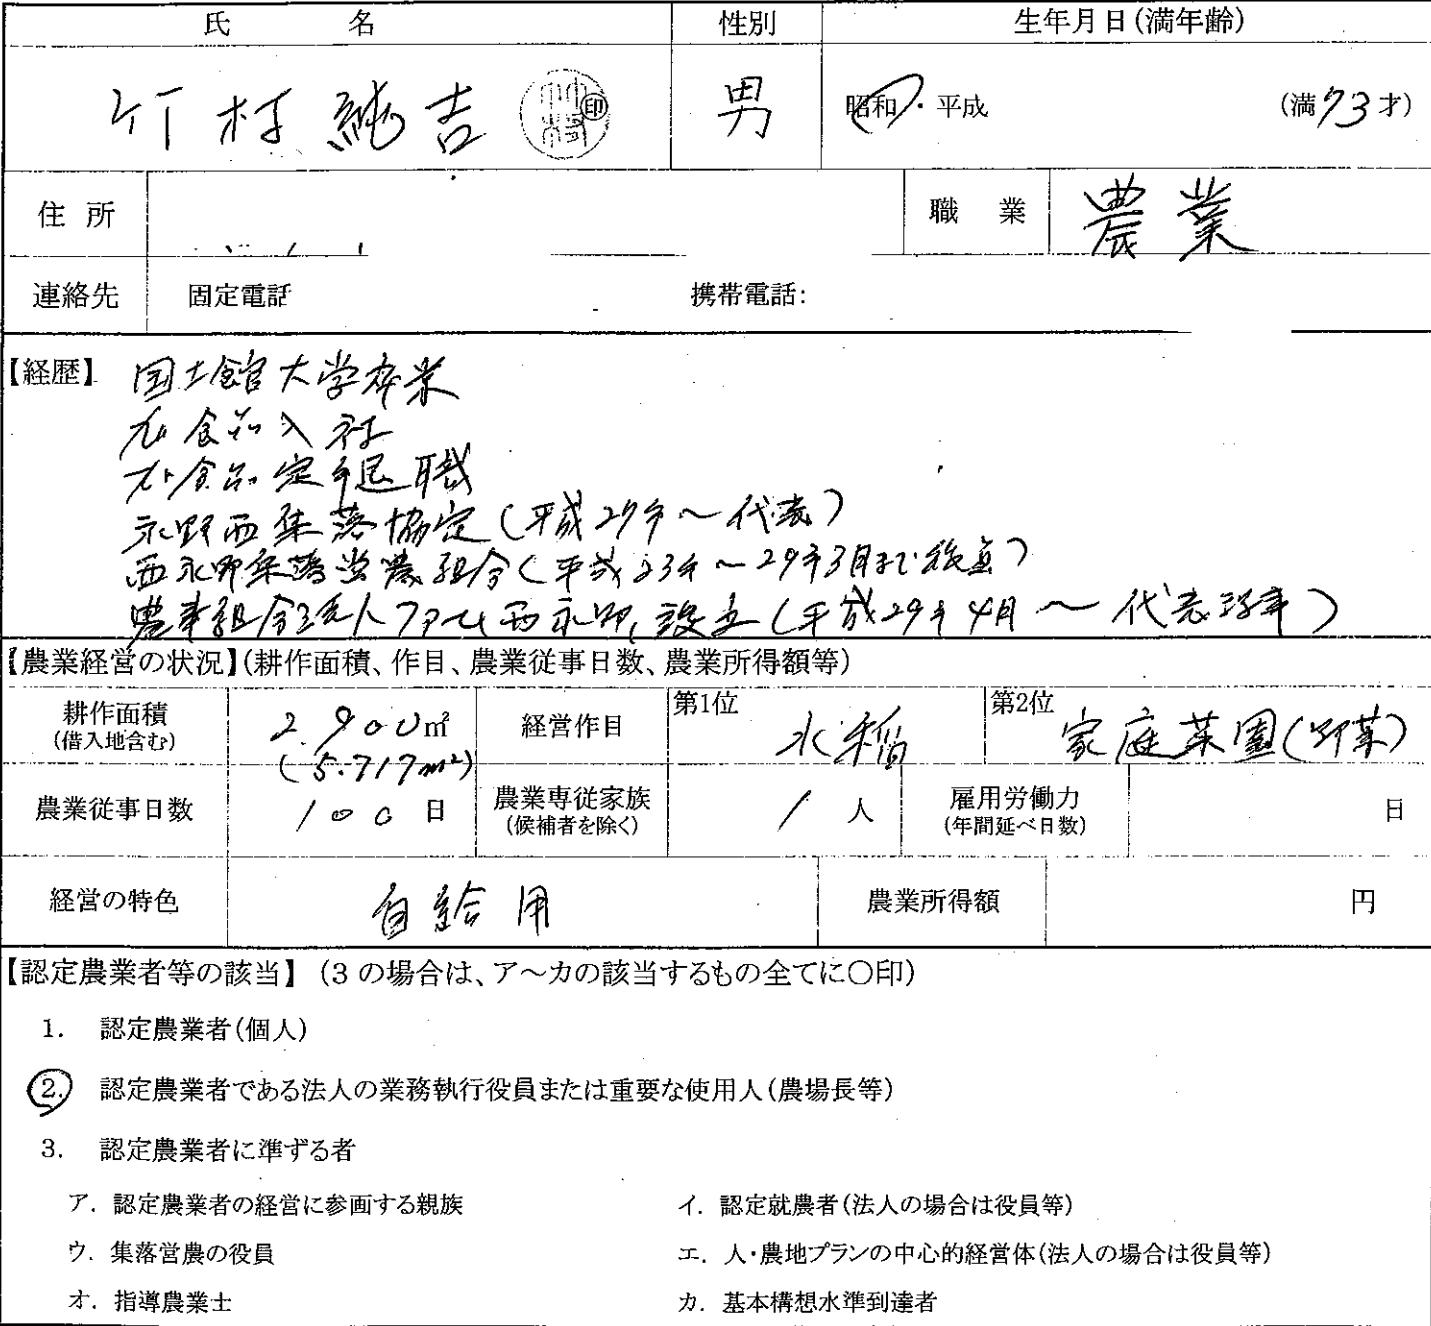 氏 名 性別 生年月日(満年齢)
竹村純吉 印 男 昭和・平成 (満73才)
住所 職業 農業
連絡先 固定電話 携帯電話:
【経歴】 国士館大学卒業
食品入社
食品定年退職
永野西集落協定(平成27年～代表)
西永野集落営農組合(平成23年～29年3月まで役員)
農事組合法人ファーム西永野設立(平成29年4月～代表理事)
【農業経営の状況】(耕作面積、作目、農業従事日数、農業所得額等)
耕作面積 (借入地含む) 2.900㎡ (5.717m²) 経営作目 第1位 水稲 第2位 家庭菜園(野菜)
農業従事日数 100日 農業専従家族 (候補者を除く) 1人 雇用労働力 (年間延べ日数) 日
経営の特色 自給用 農業所得額 円
【認定農業者等の該当】(3の場合は、ア～カの該当するもの全てに○印)
1. 認定農業者(個人)
2. 認定農業者である法人の業務執行役員または重要な使用人(農場長等)
3. 認定農業者に準ずる者
ア. 認定農業者の経営に参画する親族 イ. 認定就農者(法人の場合は役員等)
ウ. 集落営農の役員 エ. 人・農地プランの中心的経営体(法人の場合は役員等)
オ. 指導農業士 カ. 基本構想水準到達者